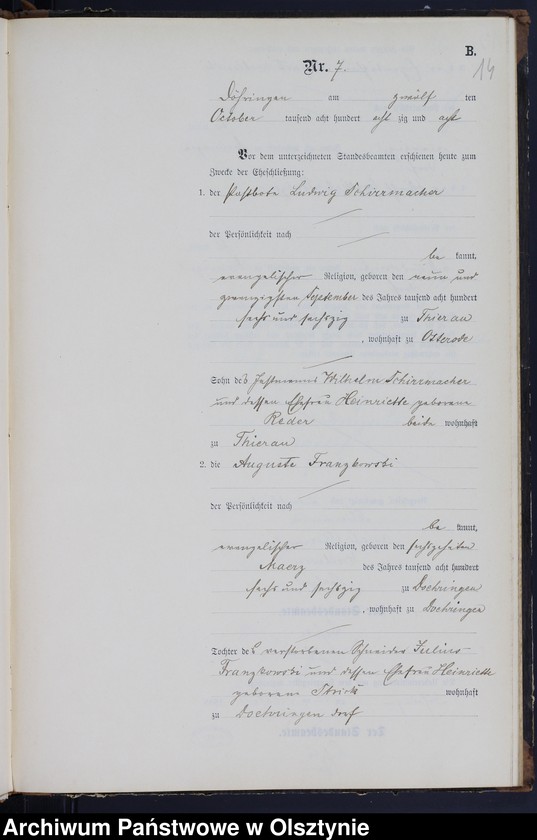 B.
14
Nr. 7.
Döhringen am zwölf ten
October tausend acht hundert acht zig und acht
Vor dem unterzeichneten Standesbeamten erschienen heute zum
Zwecke der Eheschließung:
1. der Postbote Ludwig Schirrmacher
der Persönlichkeit nach
be kannt,
evangelischer Religion, geboren den neun und
zwanzigsten September des Jahres tausend acht hundert
sechs und sechszig zu Thierau
, wohnhaft zu Osterode
Sohn des Wilhelm Schirrmacher
und dessen Ehefrau Heinriette geborene
Reder beide wohnhaft
zu Thierau
2. die Auguste Franzkowski
der Persönlichkeit nach
be kannt,
evangelischer Religion, geboren den sechszehnten
Maerz des Jahres tausend acht hundert
sechs und sechszig zu Doehringen
, wohnhaft zu Doehringen
Tochter des verstorbenen Schneider Julius
Franzkowski und dessen Ehefrau Heinriette
geborene wohnhaft
zu Doehringen dorf
Archiwum Państwowe w Olsztynie